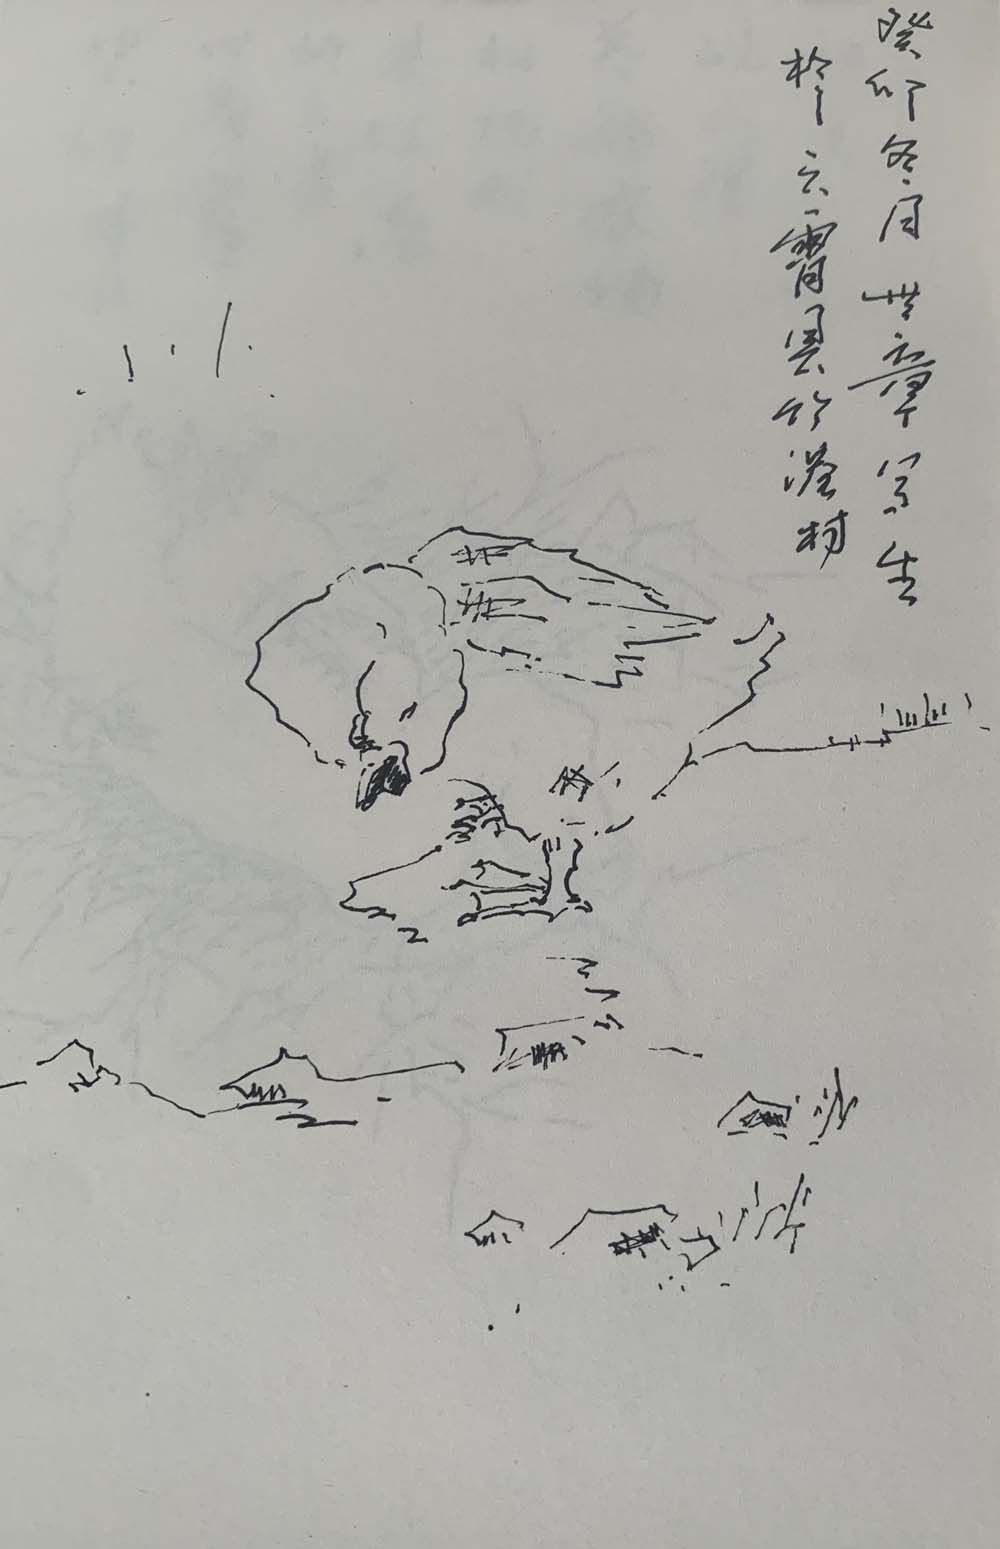 癸卯冬月世章写生
於云霄县竹港村